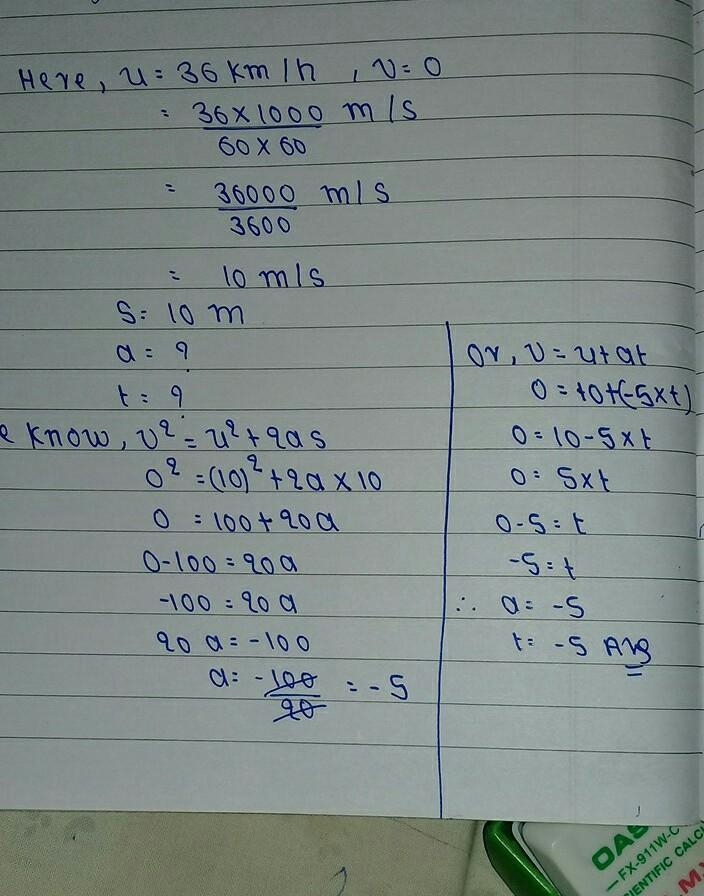 Here, u = 36 km/h , v = 0
= 36×1000 m/s
60×60
= 36000 m/s
3600
= 10 m/s
S = 10 m
a = ?
t = ?
e know, v² = u² + 2as
0² = (10)² + 2a × 10
0 = 100 + 20a
0-100 = 20a
-100 = 20a
20 a = -100
a = -100 = -5
20
Or, v = u+at
0 = 10+(-5×t)
0 = 10-5×t
0 = 5×t
0-5 = t
-5 = t
∴ a = -5
t = -5 Ans
OAS
FX-911W-C
ENTIFIC CALC
M.